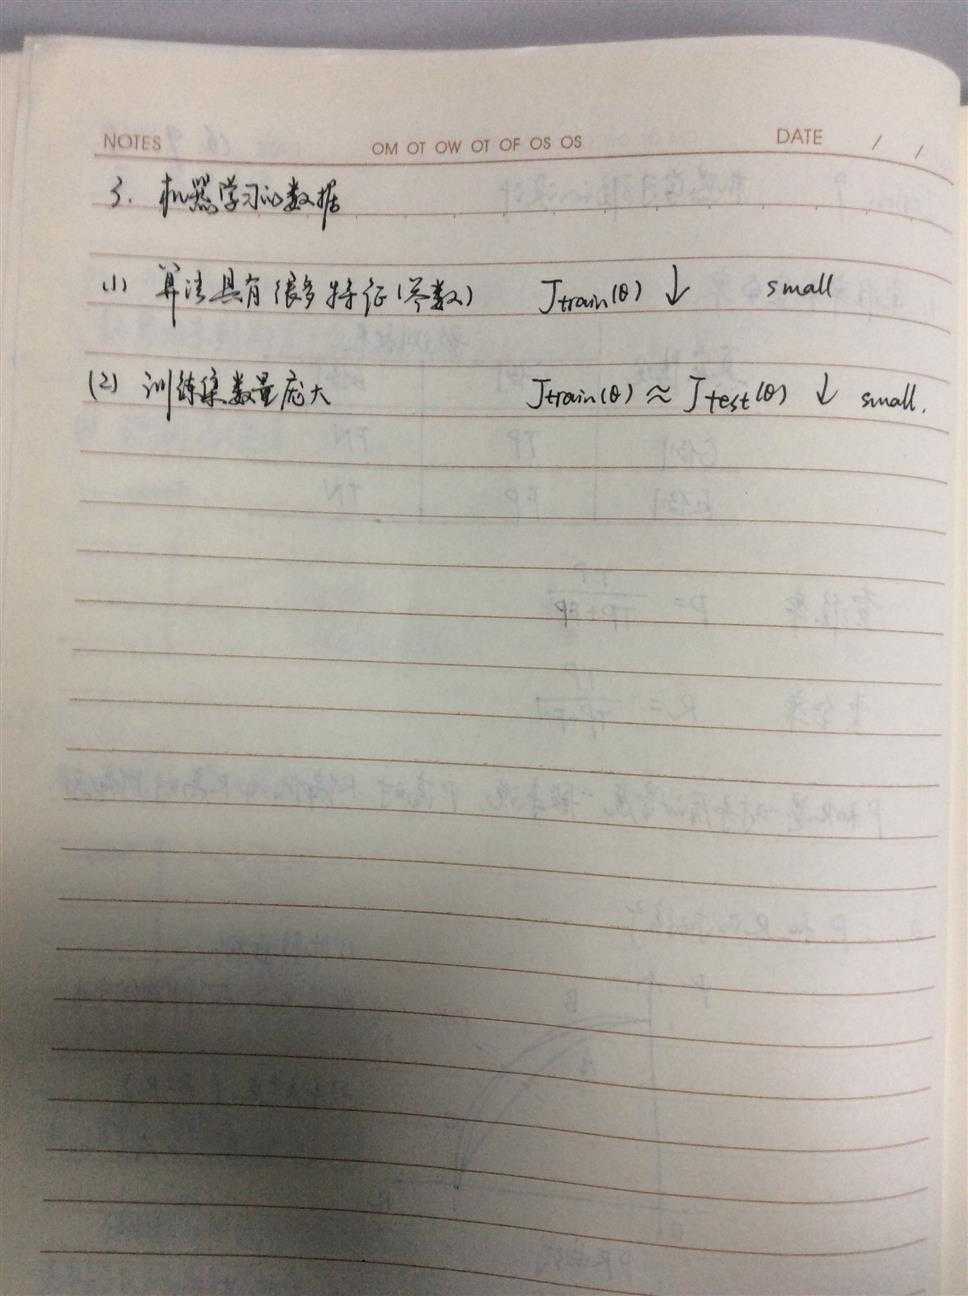 NOTES OM OT OW OT OF OS OS DATE / /
3. 机器学习的数据
(1) 算法具有很多特征(参数) Jtrain(θ) ↓ small
(2) 训练集数量庞大 Jtrain(θ) ≈ Jtest(θ) ↓ small.